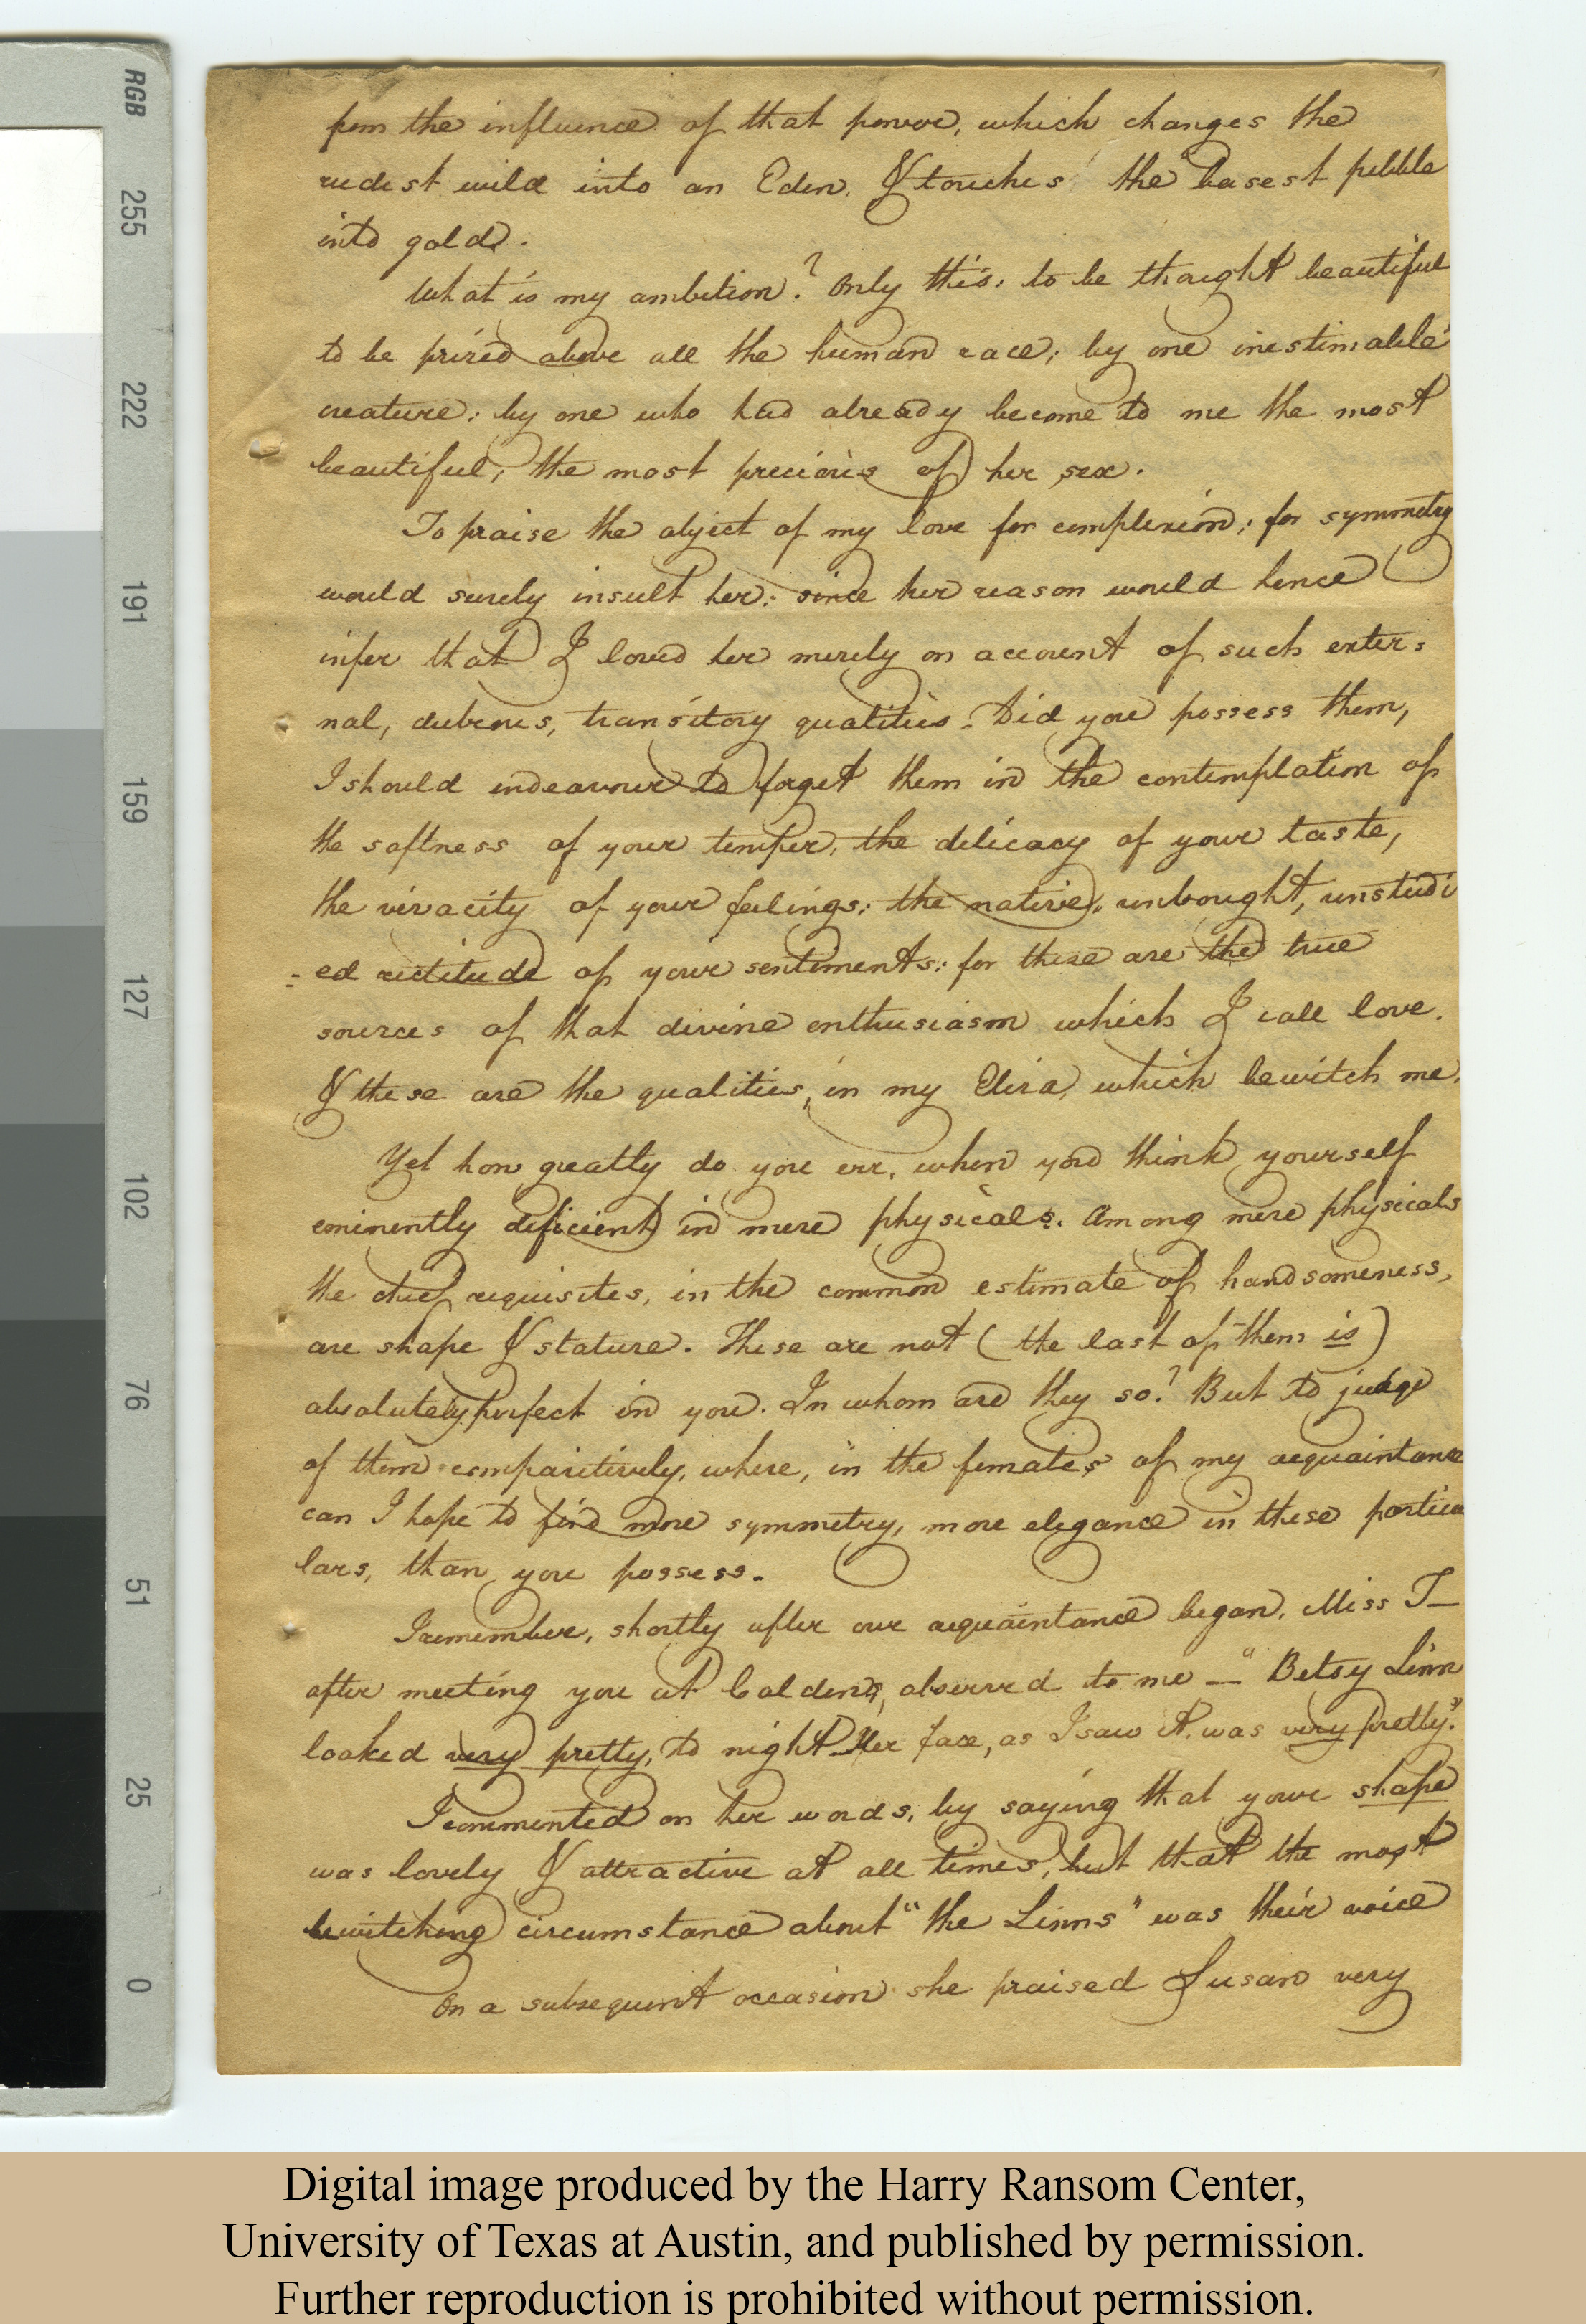 RGB
255
222
191
159
127
102
76
51
25
0
from the influence of that power, which changes the
rudest wild into an Eden, & touches the basest pebble
into gold.
What is my ambition? Only this: to be thought beautiful
to be prized above all the human race; by one inestimable
creature: by one who had already become to me the most
beautiful; the most precious of her sex.
To praise the object of my love for complexion; for symmetry
would surely insult her: since her reason would hence
infer that I loved her merely on account of such exter:
nal, dubious, transitory qualities. Did you possess them,
I should endeavour to forget them in the contemplation of
the softness of your temper, the delicacy of your taste,
the vivacity of your feelings; the native, unbought, unstudi
=ed rectitude of your sentiments: for these are the true
sources of that divine enthusiasm which I call love.
& these are the qualities, in my Eliza, which bewitch me.
Yet how greatly do you err, when you think yourself
eminently deficient in mere physicals. Among mere physicals
the chief requisites, in the common estimate of handsomeness,
are shape & stature. These are not (the last of them is)
absolutely perfect in you. In whom are they so? But to judge
of them comparitively, where, in the females of my acquaintance
can I hope to find more symmetry, more elegance in these particu
lars, than you possess.
I remember, shortly after our acquaintance began, Miss T—
after meeting you at Caldens, observed to me — "Betsy Linn
looked very pretty, to night. Her face, as I saw it, was very pretty."
I commented on her words, by saying that your shape
was lovely & attractive at all times, but that the most
bewitching circumstance about "the Linns" was their voice
On a subsequent occasion she praised Susan very
Digital image produced by the Harry Ransom Center,
University of Texas at Austin, and published by permission.
Further reproduction is prohibited without permission.